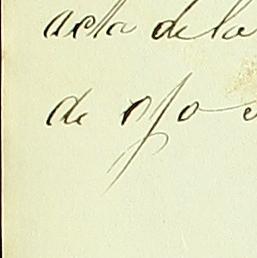 acta de la
de ojo